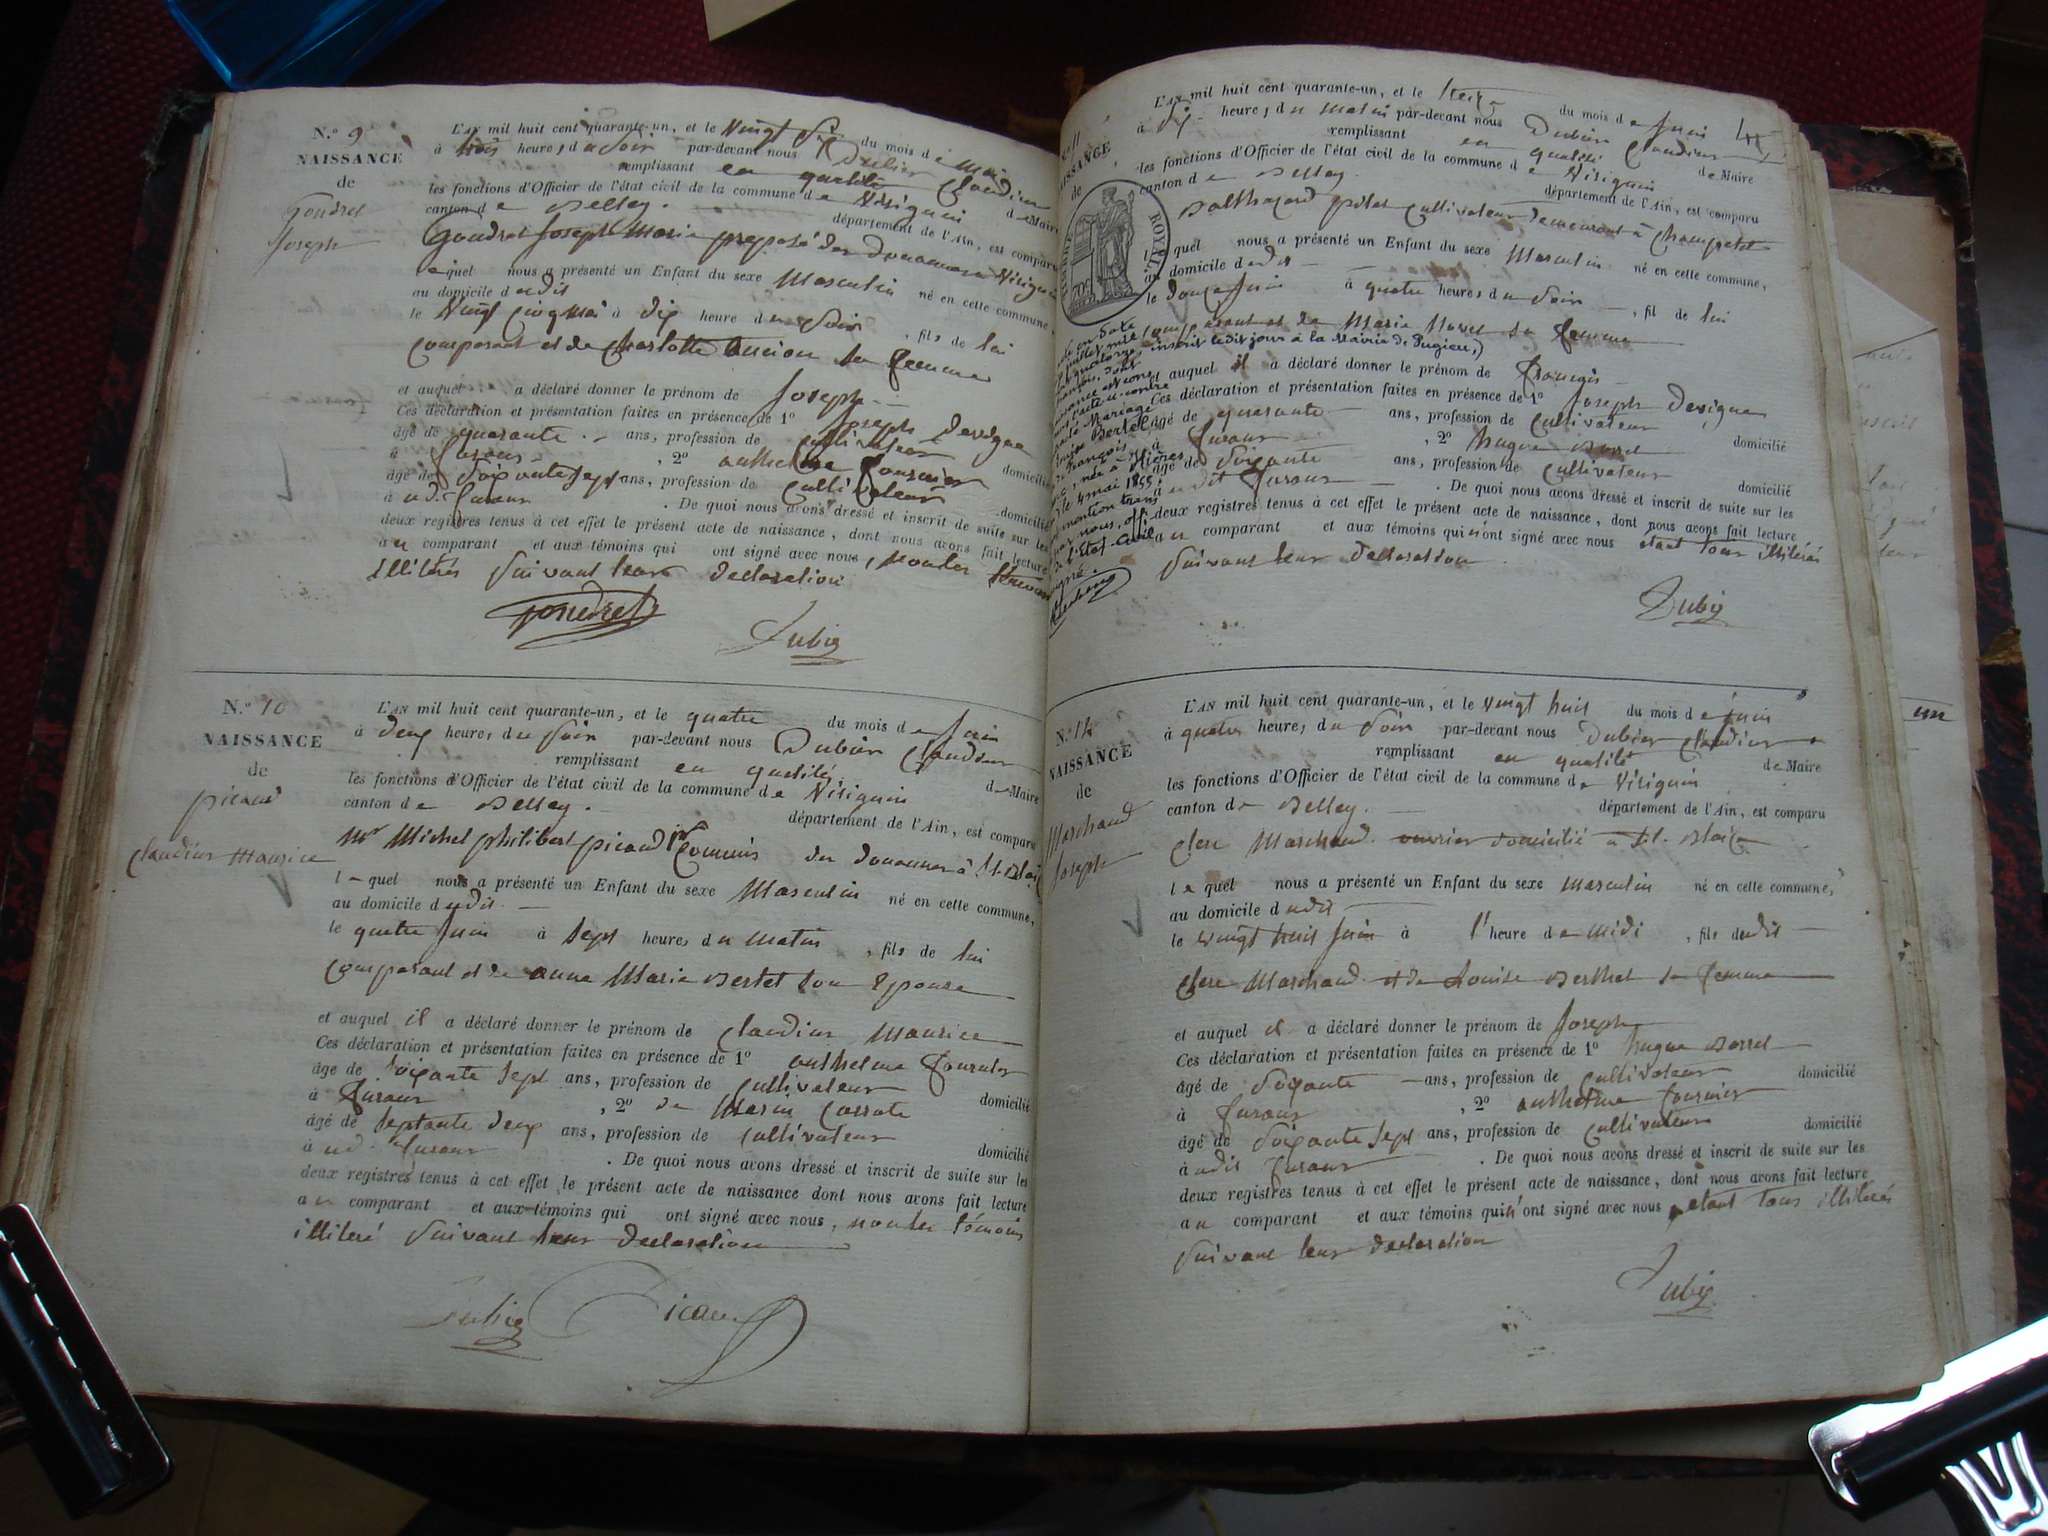 N.º 9
NAISSANCE
de
Gondret
Joseph
L'AN mil huit cent quarante-un, et le vingt six du mois de Mai
à trois heures du soir par-devant nous Dubier Claudius
remplissant en qualité de Maire
les fonctions d'Officier de l'état civil de la commune de Virignin
canton de Belley. département de l'Ain, est comparu
Gondret Joseph Marie preposé des Douannes a Virignin
lequel nous a présenté un Enfant du sexe Masculin né en cette commune,
au domicile dudit
le vingt cinq Mai à dix heure du soir , fils de lui
comparant et de Charlotte sa femme
et auquel a déclaré donner le prénom de Joseph
Ces déclaration et présentation faites en présence de 1º Joseph Devigne
âgé de quarante ans, profession de cultivateur domicilié
à Furans , 2º anthelme fournier
âgé de soixante sept ans, profession de cultivateur domicilié
à udit furans . De quoi nous avons dressé et inscrit de suite sur les
deux registres tenus à cet effet le présent acte de naissance, dont nous avons fait lecture
au comparant et aux témoins qui ont signé avec nous, non les témoins
illiterés suivant leur declaration
Gondret
Dubier
N.º 10
NAISSANCE
de
picaud
Claudius Maurice
L'AN mil huit cent quarante-un, et le quatre du mois de Juin
à deux heures du soir par-devant nous Dubier Claudius
remplissant en qualité de Maire
les fonctions d'Officier de l'état civil de la commune de Virignin
canton de Belley. département de l'Ain, est comparu
Mr Michel philibert picaud Commis des douannes à St. Blaise
lequel nous a présenté un Enfant du sexe Masculin né en cette commune,
au domicile dudit
le quatre Juin à sept heures du matin , fils de lui
comparant et de anne Marie Bertet son Epouse
et auquel il a déclaré donner le prénom de Claudius Maurice
Ces déclaration et présentation faites en présence de 1º anthelme fournier
âgé de soixante sept ans, profession de cultivateur domicilié
à Furans , 2º de Marin
âgé de septante deux ans, profession de cultivateur domicilié
à udit furans . De quoi nous avons dressé et inscrit de suite sur les
deux registres tenus à cet effet le présent acte de naissance dont nous avons fait lecture
au comparant et aux témoins qui ont signé avec nous, non les témoins
illiteré suivant leur declaration
Dubier Picaud
N.º 11
NAISSANCE
de
TIMBRE ROYAL
L'AN mil huit cent quarante-un, et le treize du mois de Juin
à dix heures du matin par-devant nous Dubier Claudius
remplissant en qualité de Maire
les fonctions d'Officier de l'état civil de la commune de Virignin
canton de Belley. département de l'Ain, est comparu
Balthazard pilat cultivateur demeurant à
lequel nous a présenté un Enfant du sexe Masculin né en cette commune,
au domicile dudit
le douze Juin à quatre heures du soir , fils de lui
comparant et de Marie sa femme
inscrit ledit jour à la Mairie de Pugieu,)
auquel il a déclaré donner le prénom de François
Ces déclaration et présentation faites en présence de 1º Joseph Devigne
âgé de quarante ans, profession de cultivateur domicilié
à Furans , 2º hugue Borrel
âgé de soixante ans, profession de cultivateur domicilié
à udit Furans . De quoi nous avons dressé et inscrit de suite sur les
deux registres tenus à cet effet le présent acte de naissance, dont nous avons fait lecture
au comparant et aux témoins qui n'ont signé avec nous etant tous illiterés
suivant leur declaration
Dubier
acte Mariage
Bertet
François
née à
4 mai 1855
mention
par nous, off.
de l'Etat-Civil
N.º 12
NAISSANCE
de
Marchand
Joseph
L'AN mil huit cent quarante-un, et le vingt huit du mois de Juin
à quatre heures du soir par-devant nous Dubier Claudius
remplissant en qualité de Maire
les fonctions d'Officier de l'état civil de la commune de Virignin
canton de Belley. département de l'Ain, est comparu
Clere Marchand ouvrier domicilié a St. Blaise
lequel nous a présenté un Enfant du sexe Masculin né en cette commune,
au domicile dudit
le vingt huit Juin à l'heure de midi , fils dudit
Clere Marchand et de Louise Berthet sa femme
et auquel il a déclaré donner le prénom de Joseph
Ces déclaration et présentation faites en présence de 1º hugue Borrel
âgé de soixante ans, profession de cultivateur domicilié
à Furans , 2º anthelme fournier
âgé de soixante sept ans, profession de cultivateur domicilié
à udit Furans . De quoi nous avons dressé et inscrit de suite sur les
deux registres tenus à cet effet le présent acte de naissance, dont nous avons fait lecture
au comparant et aux témoins qui n'ont signé avec nous etant tous illiterés
suivant leur declaration
Dubier